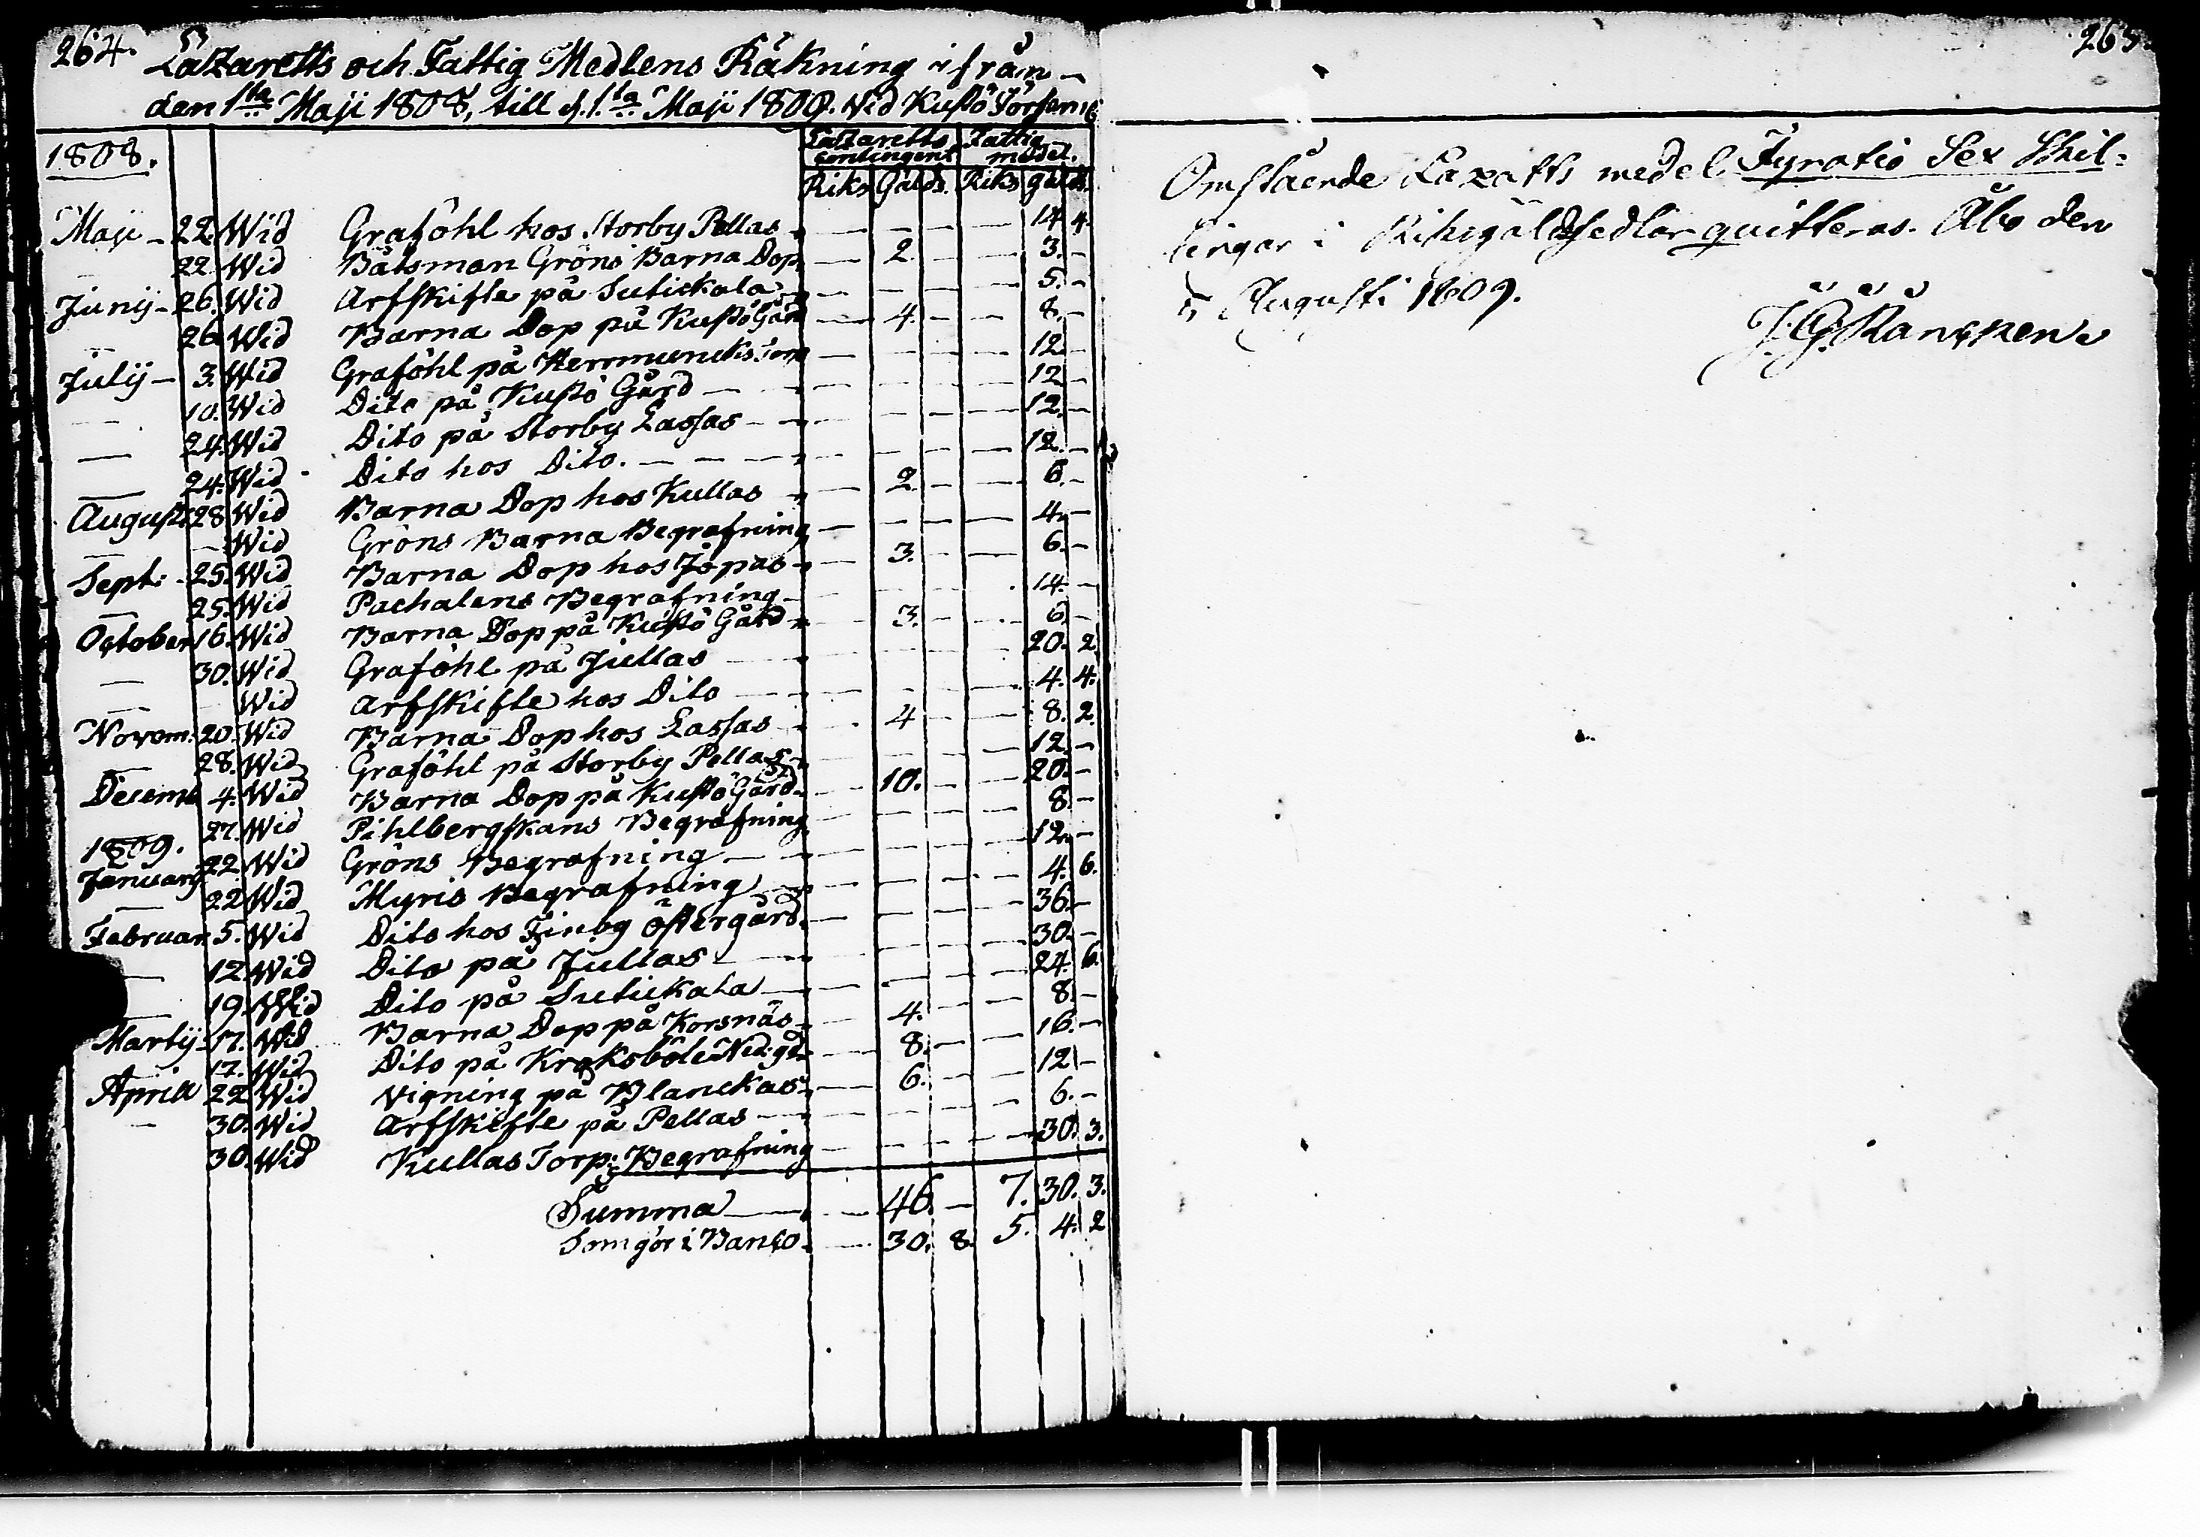 264.
Lazaretts och Fattig Medlens Räkning ifrån
den 1sta Maji 1808, till d. 1.sta Maji 1809. vid Kustö
1808. Lazaretts contingent Fattig medel.
Riks Gälds. Riks gälds.
Maji - 22. Wid Graföhl hos Storby Pellas - - - - 14. 4.
22. Wid Båtsman Gröns Barna Dop - 2. - - 3. -
Junij - 26. Wid Arfskifte på Sutickala - - - - 5. -
26. Wid Barna Dop på Kustö Gård - 4. - - 8. -
Julij - 3. Wid Graföhl på Herrmuncks Torp - - - - 12. -
10. Wid Dito på Kustö Gård - - - - 12. -
24. Wid Dito på Storby Lassas - - - - 12. -
24. Wid Dito hos Dito. - - - - 12. -
Augusti 28. Wid Barna Dop hos Kullas - 2. - - 6. -
- Wid Gröns Barna Begrafning - - - - 4. -
Sept: 25. Wid Barna Dop hos Jöpas - 3. - - 6. -
25. Wid Pachalens Begrafning - - - - 14. -
October 16. Wid Barna Dop på Kustö Gård - 3. - - 6. -
30. Wid Graföhl på Jullas - - - - 20. 2.
Wid Arfskifte hos Dito - - - - 4. 4.
Novem: 20. Wid Barna Dop hos Lassas - 4 - - 8. 2.
28. Wid Graföhl på Storby Pellas - - - - 12. -
Decemb 4. Wid Barna Dop på Kustö Gård - 10. - - 20. -
27. Wid Pihlbergskans Begrafning - - - - 8. -
1809.
January 22. Wid Gröns Begrafning - - - - 12. -
22 Wid Myris Begrafning - - - - 4. 6.
Februar 5. Wid Dito hos Finby Östergård - - - - 36. -
12 Wid Dito på Jullas - - - - 30. -
19 Wid Dito på Sutickala - - - - 24. 6.
Martij 17. Wid Barna Dop på Korsnäs - 4. - - 8. -
17. Wid Dito på Kroksböle Ned: gd - 8. - - 16. -
Aprill 22 Wid Vigning på Blanckas - 6. - - 12 -
30. Wid Arfskifte på Pellas - - - - 6. -
30. Wid Kullas Torp: Begrafning - - - - 30. 3.
Summa - 46. - 7. 30. 3.
Som gör i Banco - 30. 8. 5. 4. 2
265.
Omstående Lazatts medel Fyratio Sex Skil-
lingar i Riksgäldssedlar quitteras. Åbo den
5 Augusti 1809.